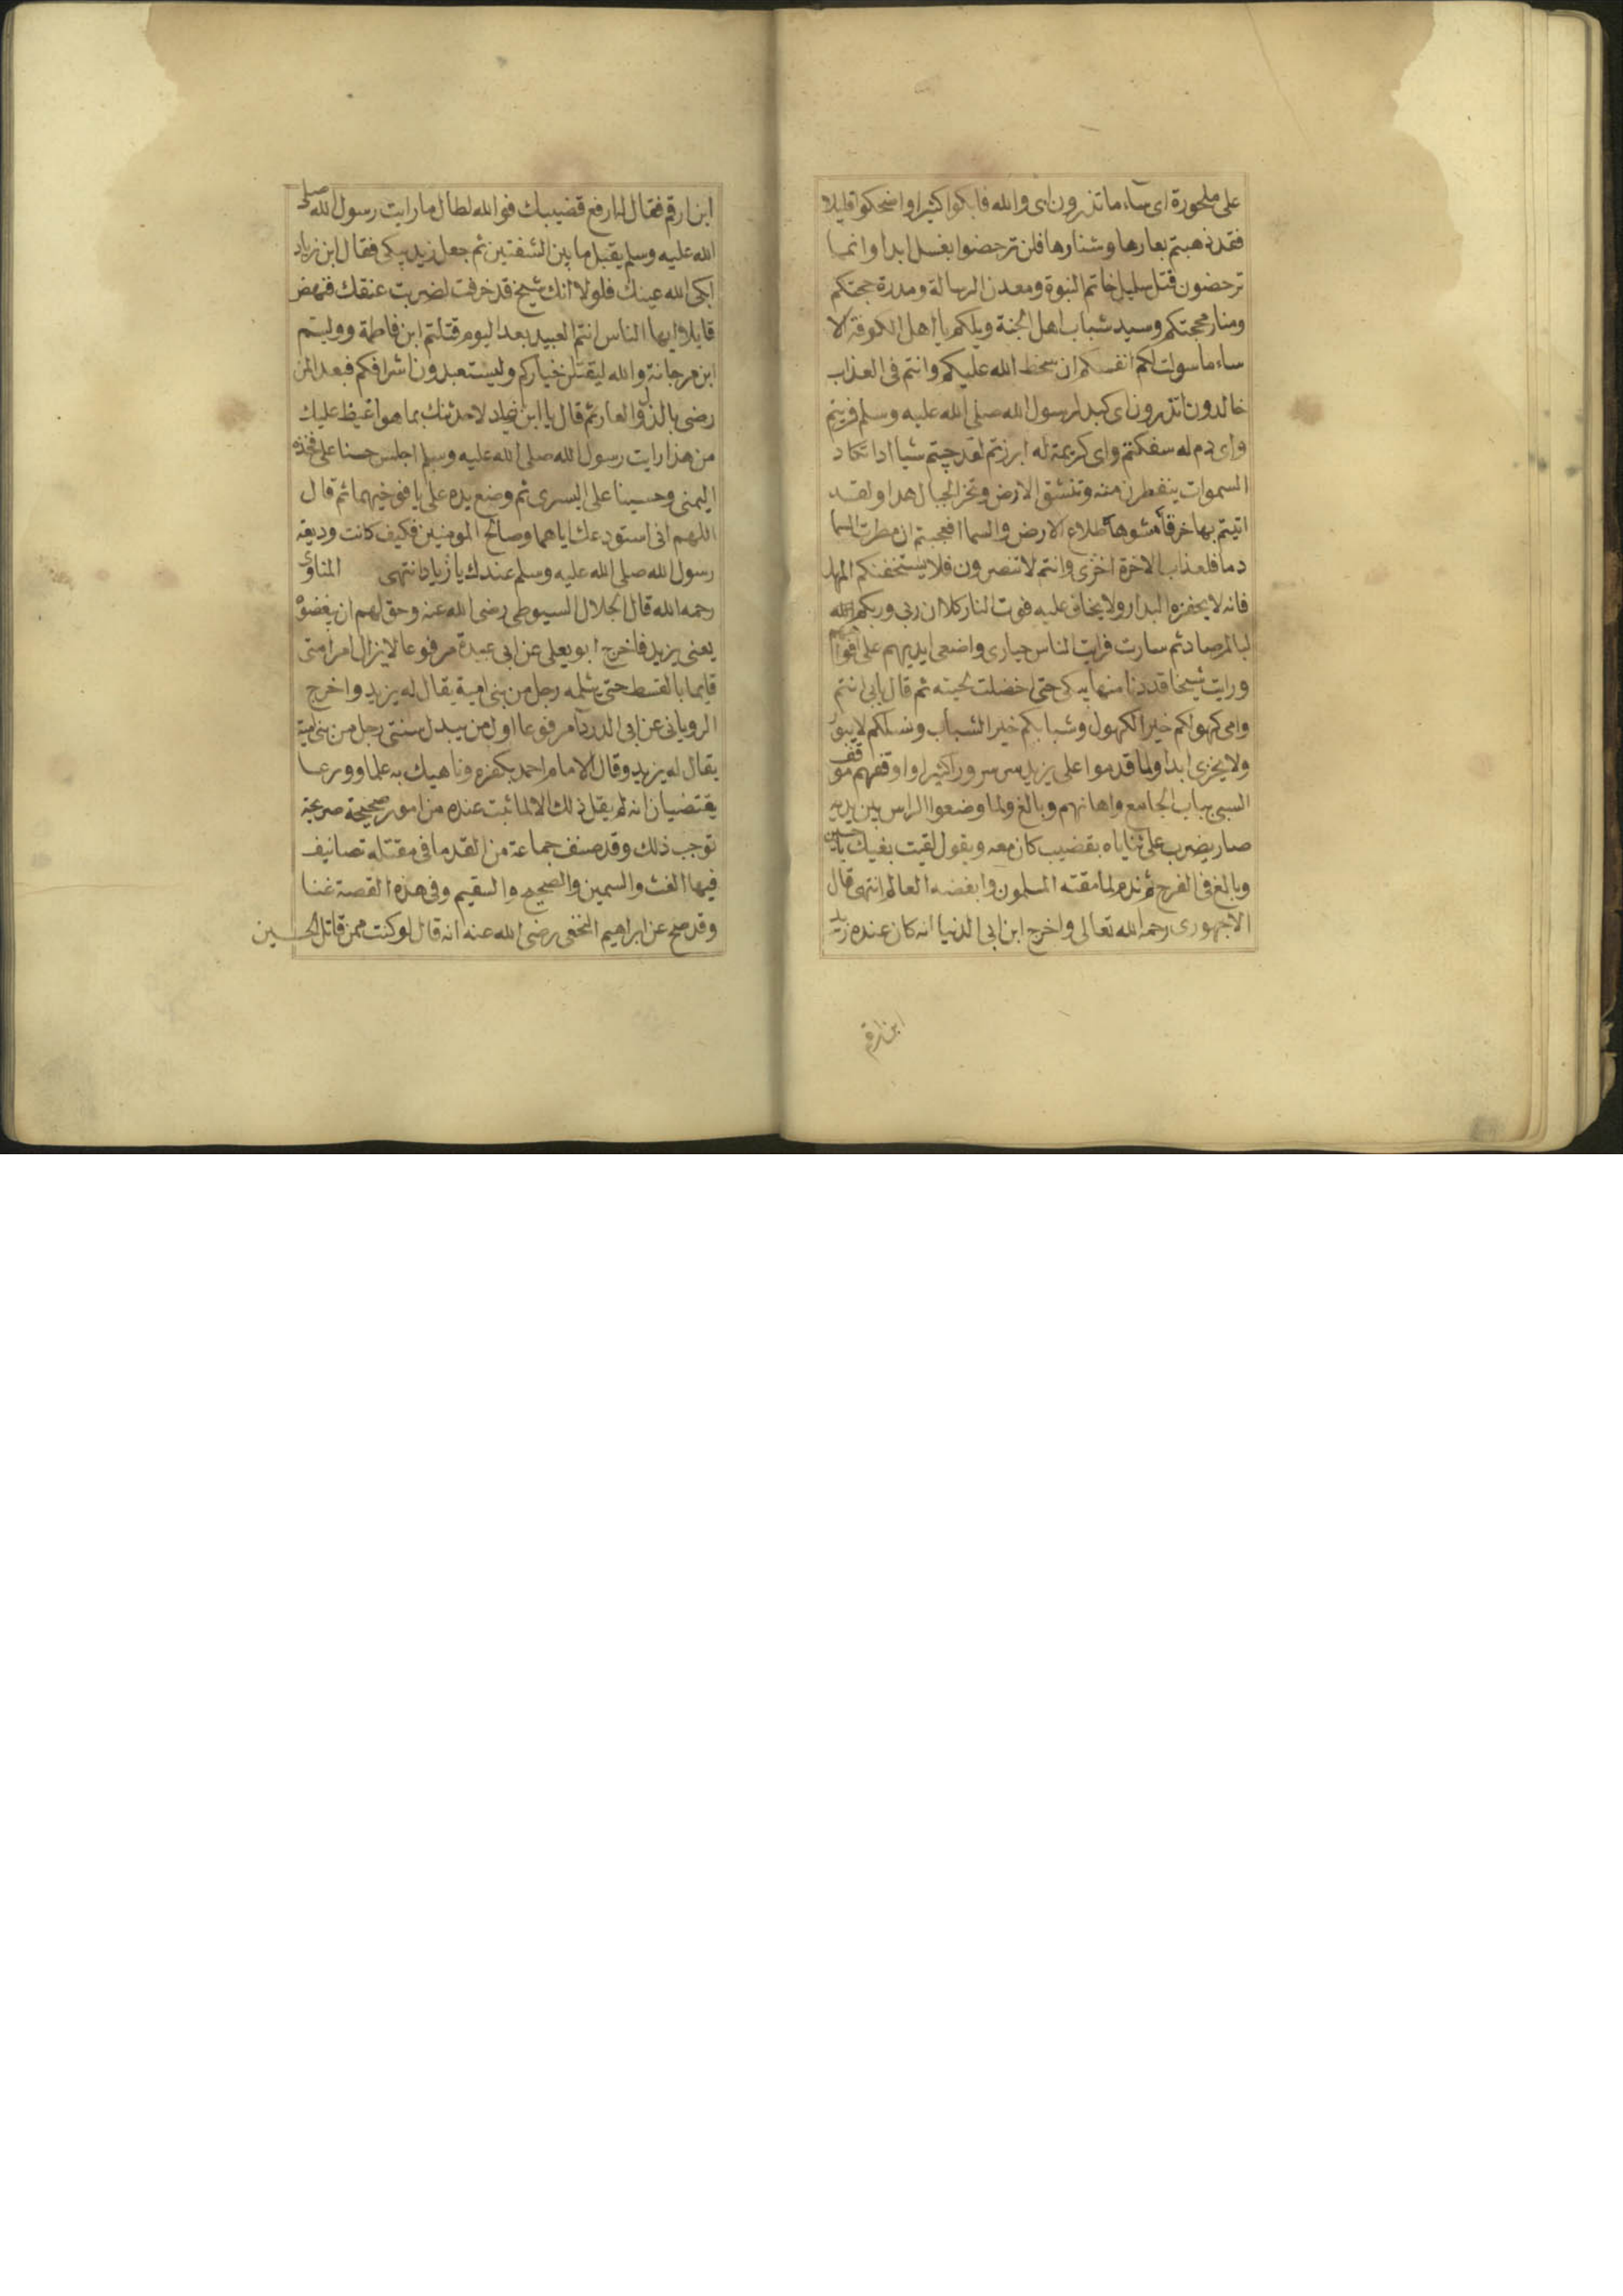 على ملحورة اى ساء ما تذرون اى والله فابكوا كثيرا واضحكوا قليلا
فقد ذهبتم بعارها وشنارها فلن ترحضوا بغسل ابدا وانما
ترحضون قتل سليل خاتم النبوة ومعدن الرسالة ومدرة حجتكم
ومنار محجتكم وسيد شباب اهل الجنة ويلكم يا اهل الكوفة الا
ساء ما سولت لكم انفسكم ان سخط الله عليكم وانتم فى العذاب
خالدون اتذرون اى كبد لرسول الله صلى الله عليه وسلم فريتم
واى دم له سفكتم واى كريمة له ابرزتم لقد جيتم شيا ادا تكاد
السموات ينفطرن منه وتنشق الارض وتخر الجبال هدا ولقد
اتيتم بها خرقا شوها طلاع الارض والسما افعجبتم ان مطرت السما
دما فلعذاب الاخرة اخزى وانتم لا تنصرون فلا يستخفنكم المهل
فانه لا يحفزه البدار ولا يخاف عليه فوت النار كلا ان ربى وربكم الله
لبالمرصاد ثم سارت فرايت الناس حيارى واضعى ايديهم على افواههم
ورايت شيخا قد دنا منها يبكى حتى اخضلت لحيته ثم قال بابى انتم
وامى كهولكم خير الكهول وشبابكم خير الشباب ونسلكم لا يبور
ولا يخزى ابدا ولما قدموا على يزيد سر سرورا كثيرا واوقفهم موقف
السبى بباب الجامع واهانهم وبالغ ولما وضعوا الراس بين يديه
صار يضرب على ثناياه بقضيب كان معه ويقول لقيت بغيك يا حسين
وبالغ فى الفرح ثم ندم لما مقته المسلمون وابغضه العالم انتهى قال
الاجهورى رحمه الله تعالى واخرج ابن ابى الدنيا انه كان عنده زيد
ابن ارقم
ابن ارقم فقال له ارفع قضيبك فوالله لطال ما رايت رسول الله صلى
الله عليه وسلم يقبل ما بين الشفتين ثم جعل زيد يبكى فقال ابن زياد
ابكى الله عينك فلولا انك شيخ قد خرفت لضربت عنقك فنهض
قايلا ايها الناس انتم العبيد بعد اليوم قتلتم ابن فاطمة ووليتم
ابن مرجانة والله ليقتلن خياركم وليستعبدون اشرافكم فبعدا لمن
رضى بالذل والعار ثم قال يا ابن زياد لاحدثنك بما هو اغيظ عليك
من هذا رايت رسول الله صلى الله عليه وسلم اجلس حسنا على فخذه
اليمنى وحسينا على اليسرى ثم وضع يده على يافوخيهما ثم قال
اللهم انى استودعك اياهما وصالح المومنين فكيف كانت وديعة
رسول الله صلى الله عليه وسلم عندك يا زياد انتهى المناوى
رحمه الله قال الجلال السيوطى رضى الله عنه وحق لهم ان يغضوا
يعنى يزيد فاخرج ابو يعلى عن ابى عبيدة مرفوعا لا يزال امر امتى
قايما بالقسط حتى يثلمه رجل من بنى امية يقال له يزيد واخرج
الرويانى عن ابى الدردآ مرفوعا اول من يبدل سنتى رجل من بنى امية
يقال له يزيد وقال الامام احمد بكفره وناهيك به علما وورعا
يقتضيان انه لم يقل ذلك الا لما ثبت عنده من امور صحيحة صريحة
توجب ذلك وقد صنف جماعة من القدما فى مقتله تصانيف
فيها الغث والسمين والصحيح والسقيم وفى هذه القصة غنا
وقد صح عن ابراهيم النخعى رضى الله عنه انه قال لو كنت ممن قاتل الحسين